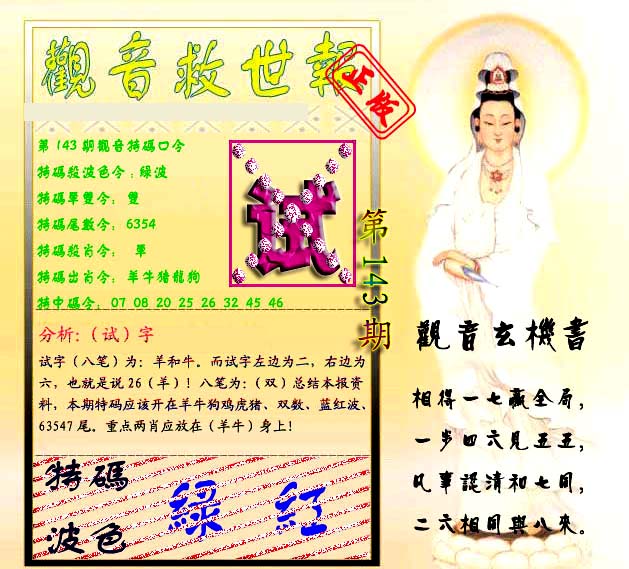 觀音救世報
正版
第143期觀音特碼口令
特碼殺波色令:綠波
特碼單雙令: 雙
特碼尾數令: 6354
特碼殺肖令: 單
特碼出肖令: 羊牛猪龍狗
特中碼令: 07 08 20 25 26 32 45 46
试
第143期
分析:（试）字
试字（八笔）为：羊和牛。而试字左边为二，右边为
六，也就是说26（羊）！八笔为：（双）总结本报资
料，本期特码应该开在羊牛狗鸡虎猪、双数、蓝红波、
63547尾。重点两肖应放在（羊牛）身上！
特碼
波色
綠 紅
觀音玄機書
相得一七贏全局，
一步四六見五五，
凡事認清和七同，
二六相同與八來。